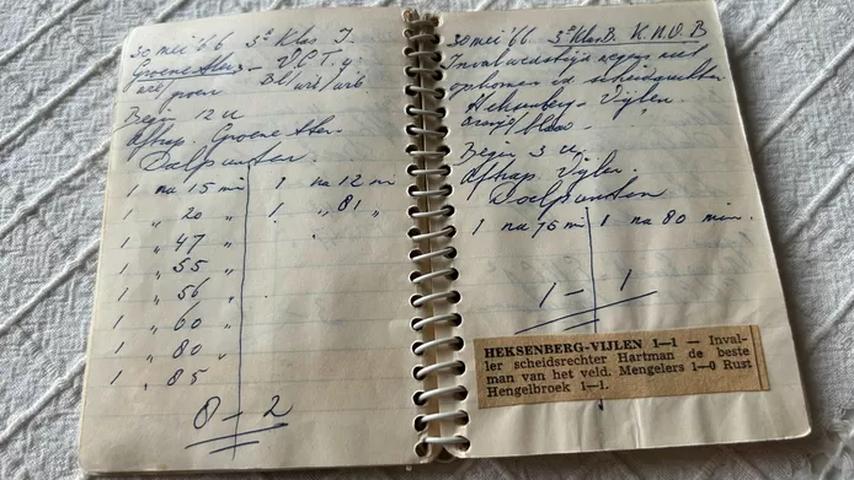 30 mei '66 3e Klas I.
Groene Ster - V.C.T. y.
Bl/wit/wit.
Begin 12 u
Aftrap. Groene Ster.
Doelpunten.
1 na 15 min 1 na 12 min
1 „ 20 „ 1. „ 81 „
1 „ 47 „
1 „ 55 „
1 „ 56 „
1 „ 60 „
1 „ 80 „
1 „ 85
8 - 2
30 mei '66. 3e Klas B. K.N.V.B
Inval wedstrijd wegens niet
opkomen scheidsrechter.
Heksenberg - Vijlen.
oranje/blauw - „
Begin 3 u.
Aftrap Vijlen.
Doelpunten
1 na 75 min 1 na 80 min.
1 - 1
HEKSENBERG-VIJLEN 1—1 — Inval-
ler scheidsrechter Hartman de beste
man van het veld. Mengelers 1—0 Rust
Hengelbroek 1—1.